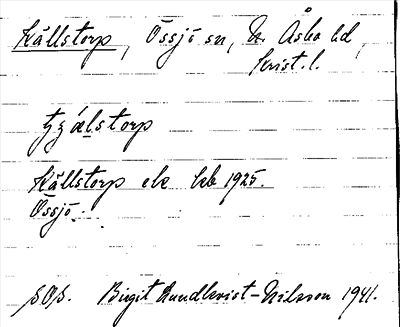 Källstorp, Össjö sn, N. Åsbo hd,
Krist. l.
tzälstorp
Källstorp ek kb 1925.
Össjö.
SOS. Birgit Rundkvist-Nilsson 1941.